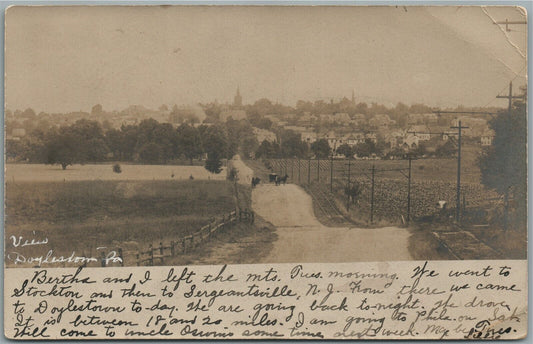 View
Doylestown Pa
Bertha and I left the mts. Tues. morning. We went to
Stockton and then to Sergeantsville, N.J. From there we came
to Doylestown to-day. We are going back to-night. We drove.
It is between 18 and 20 miles. I am going to Phila. on Sat.
Will come to uncle some time next week. May be Tues.